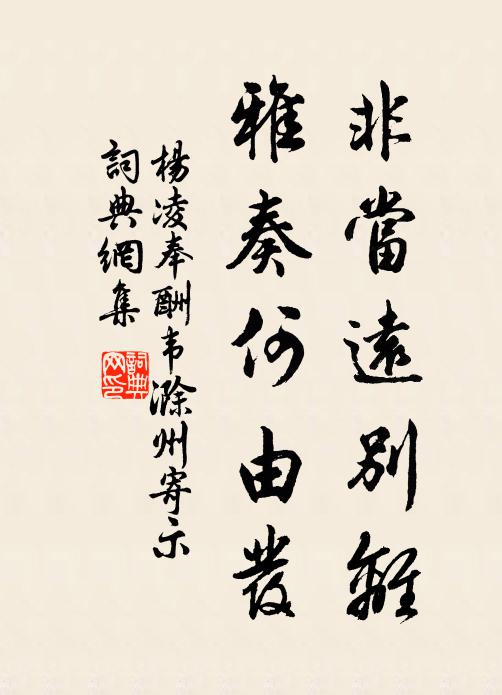 非當遠別離
雅奏何由發
楊凌奉酬韦滁州寄示
詞典網集
詞典网印